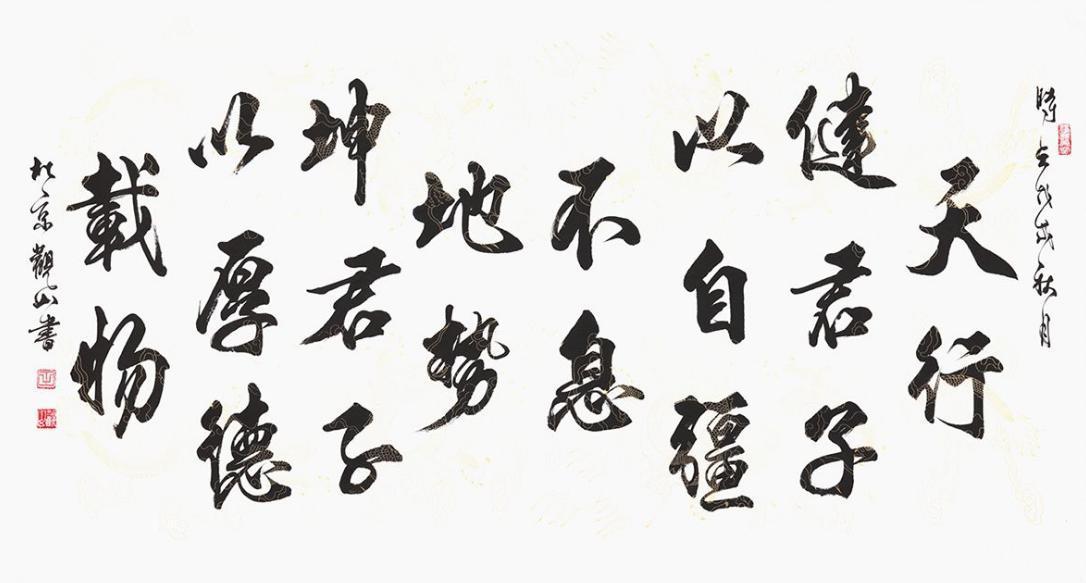 時在戊戌秋月
天行
健君子
以自彊
不息
地勢
坤君子
以厚德
載物
於京觀山書